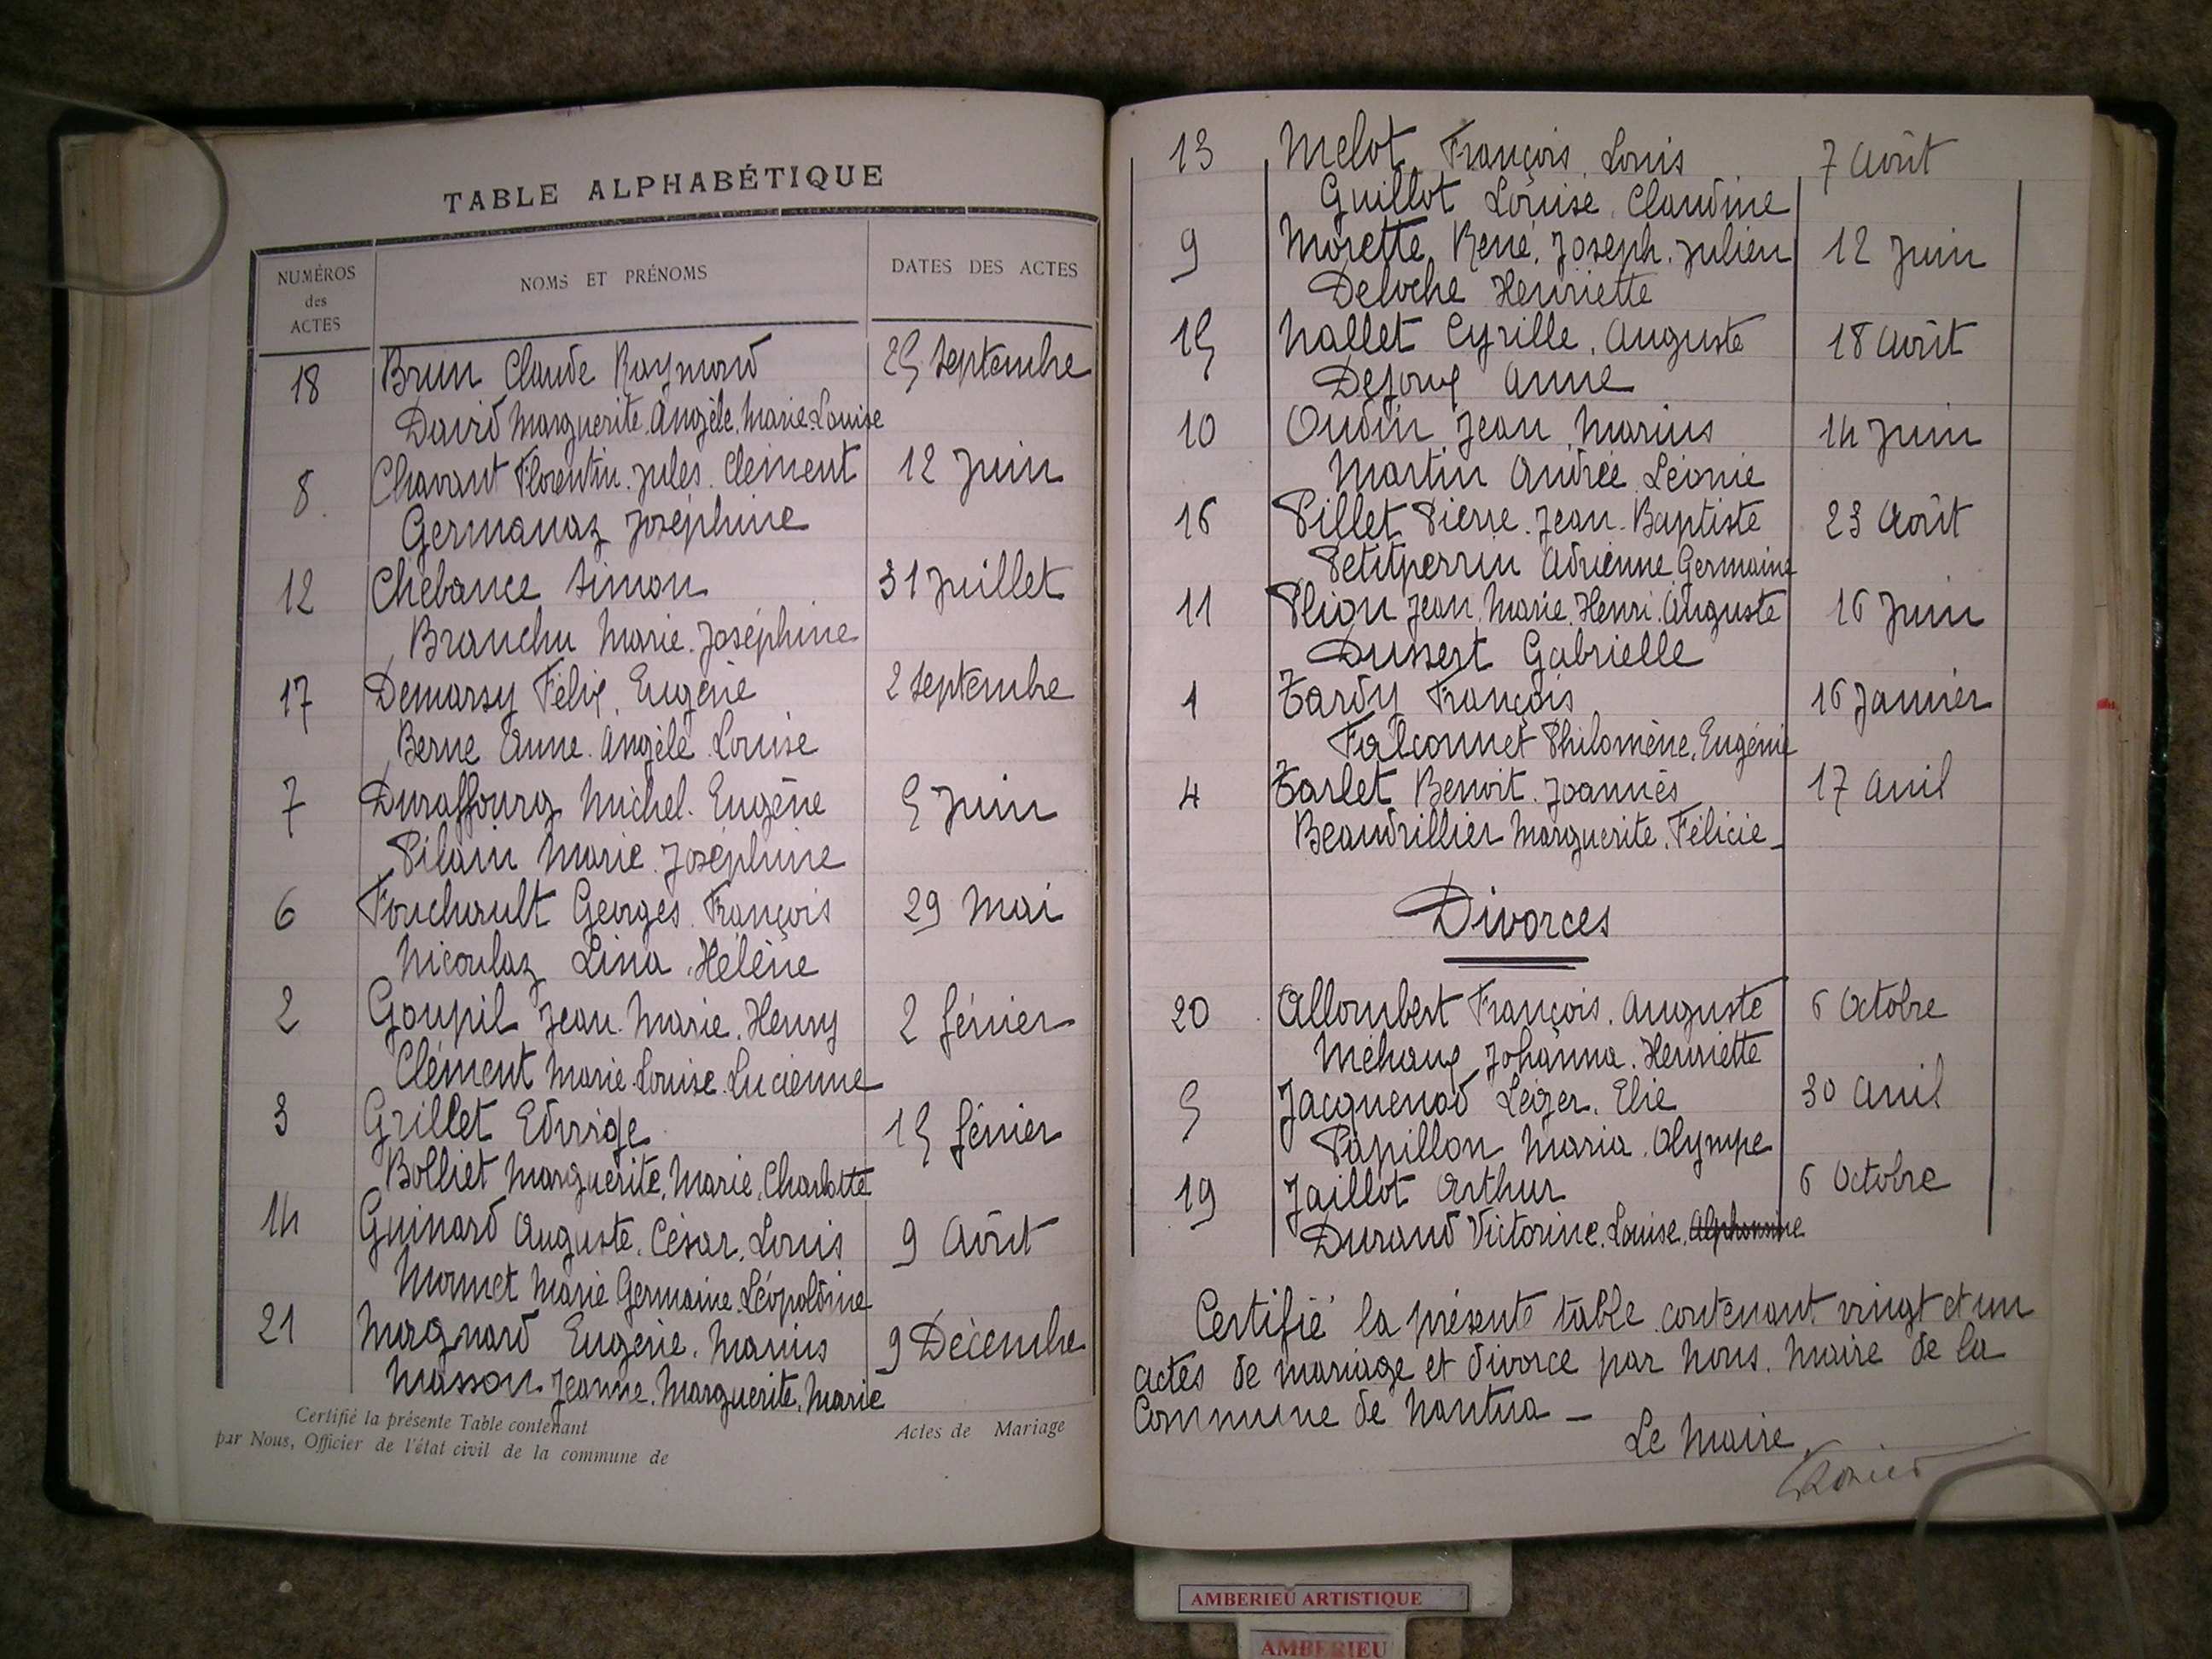 TABLE ALPHABÉTIQUE
NUMÉROS des ACTES NOMS ET PRÉNOMS DATES DES ACTES
18 Brun Claude Raymond 25 Septembre
David Marguerite. Angèle. Marie-Louise
8. Chavant Florentin. Jules. Clément 12 Juin
Germanaz Joséphine
12 Chebance Simon 31 Juillet
Branchu Marie. Joséphine
17 Demarsy Félix. Eugène 2 Septembre
Berne Anne. Angèle. Louise
7 Duraffourg Michel. Eugène 5 Juin
Pilain Marie. Joséphine
6 Fouchault Georges. François 29 Mai
Nicoulaz Lina. Hélène
2 Goupil Jean. Marie. Henry 2 février
Clément Marie. Louise. Lucienne
3 Grillet Edwige 15 février
Bolliet Marguerite. Marie. Charlotte
14 Guinard Auguste. César. Louis 9 Août
Mornet Marie Germaine. Léopoldine
21 Magnard Eugène. Marius 9 Décembre
Masson Jeanne. Marguerite. Marie
Certifié la présente Table contenant Actes de Mariage
par Nous, Officier de l'état civil de la commune de
13 Melot François. Louis 7 Août
Guillot Louise. Claudine
9 Morette René. Joseph. Julien 12 Juin
Deloche Henriette
15 Nallet Cyrille. Auguste 18 Août
Dejoux Anne
10 Oudin Jean. Marius 14 Juin
Martin Andrée Léonie
16 Pillet Pierre. Jean. Baptiste 23 Août
Petitperrin Adrienne Germaine
11 Plion Jean. Marie. Henri. Auguste 16 Juin
Dussert Gabrielle
1 Tardy François 16 Janvier
Falconnet Philomène. Eugénie
4 Tarlet Benoit. Joannès 17 Avril
Beaudrillier Marguerite. Félicie
Divorces
20 Allombert François. Auguste 6 Octobre
Méhaux Johanna. Henriette
5 Jacquenod Léger. Elie 30 Avril
Papillon Maria. Olympe
19 Jaillot Arthur 6 Octobre
Durand Victorine. Louise. Alphonsine
Certifié la présente table contenant vingt et un
actes de mariage et divorce par Nous. Maire de la
Commune de Nantua _
Le Maire
AMBERIEU ARTISTIQUE
AMBERIEU